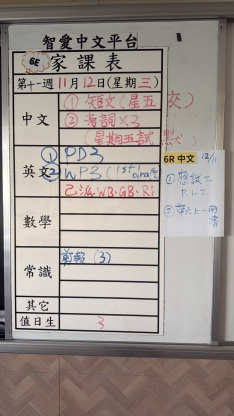 智愛中文平台
6E 家課表
第十一週 11月12日(星期三)
中文
① 短文(星五交)
② 考詞×3
(星期五試默)
英文
① PD3
② WP3 (1st
己派 WB、GB、RF
數學
常識
其它
值日生 3
6R 中文 12/11
① 應試工
P.1-2
② 第六上一冊
書